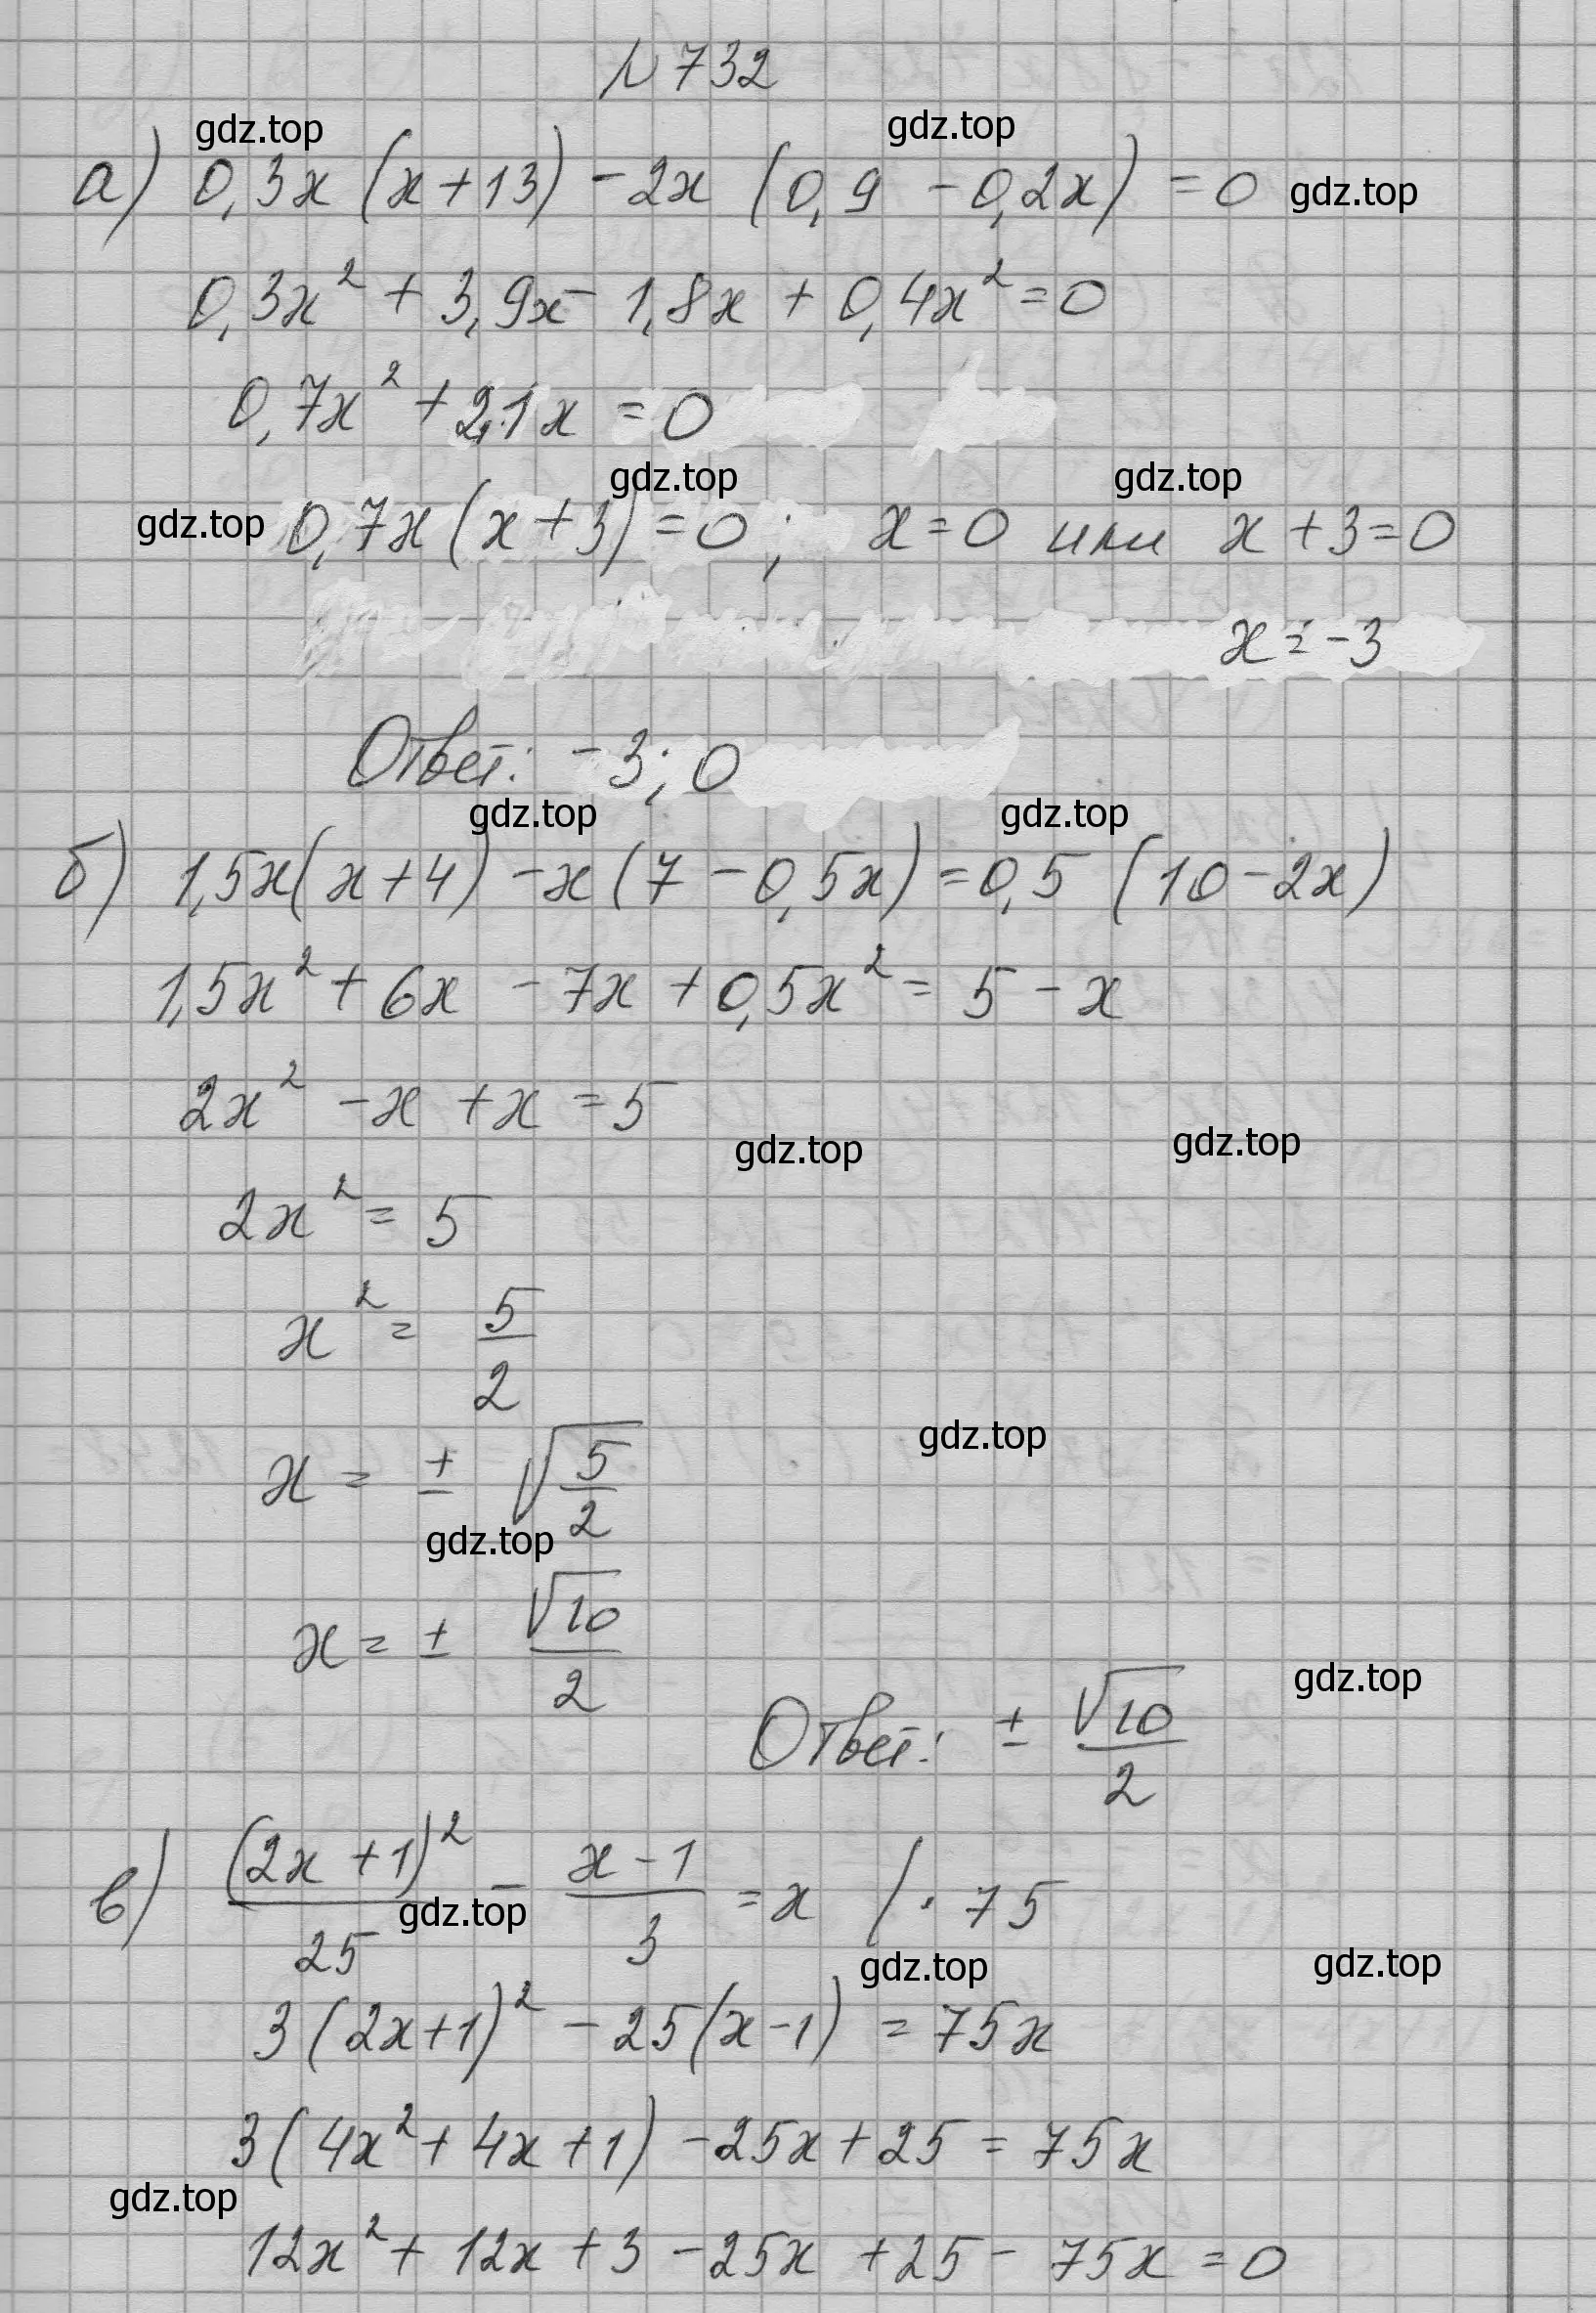 №732
gdz.top gdz.top
а) 0,3x (x+13) - 2x (0,9 - 0,2x) = 0 gdz.top
0,3x² + 3,9x - 1,8x + 0,4x² = 0
0,7x² + 2,1x = 0
gdz.top gdz.top
gdz.top 0,7x (x+3) = 0; x = 0 или x + 3 = 0
x = -3
Ответ: -3; 0
gdz.top gdz.top
б) 1,5x(x+4) - x(7 - 0,5x) = 0,5 (10 - 2x)
1,5x² + 6x - 7x + 0,5x² = 5 - x
2x² - x + x = 5
gdz.top gdz.top
2x² = 5
x² = 5/2
gdz.top
x = ± √(5/2)
gdz.top
x = ± √10/2
gdz.top
Ответ: ± √10/2
в) (2x+1)²/25 - (x-1)/3 = x /·75
gdz.top
gdz.top gdz.top
3(2x+1)² - 25(x-1) = 75x
3(4x² + 4x + 1) - 25x + 25 = 75x
gdz.top
12x² + 12x + 3 - 25x + 25 - 75x = 0